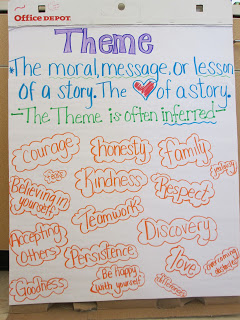 Office DEPOT
Theme
*The moral, message, or lesson
of a story. The ♥ of a story.
-The Theme is often inferred-
Courage
honesty
Family
Kindness
Believing in
yourself
Respect
Teamwork
Accepting
Others
Discovery
Persistence
love
overcoming
obstacles
Be happy
with yourself
Goodness